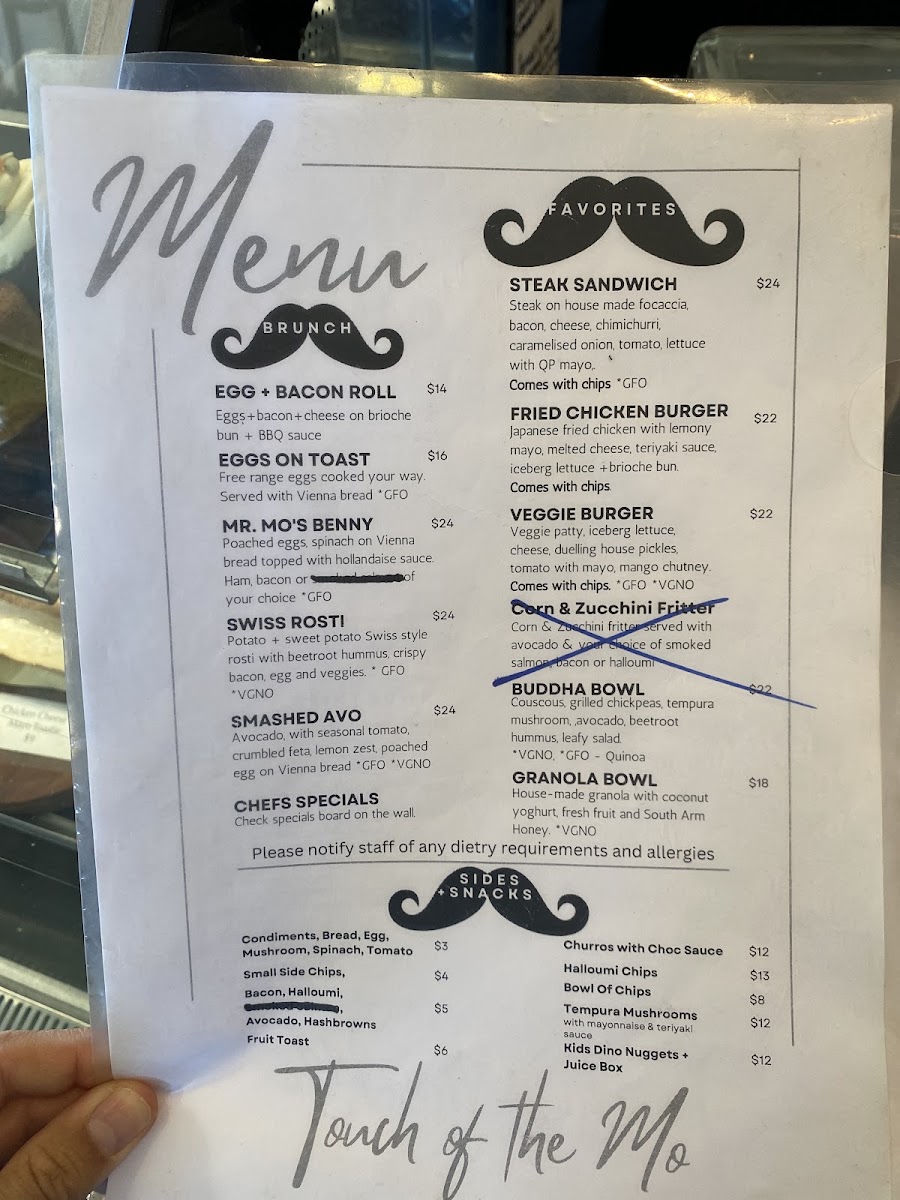 Menu
BRUNCH
EGG + BACON ROLL $14
Eggs+bacon+cheese on brioche
bun + BBQ sauce
EGGS ON TOAST $16
Free range eggs cooked your way.
Served with Vienna bread *GFO
MR. MO'S BENNY $24
Poached eggs, spinach on Vienna
bread topped with hollandaise sauce.
Ham, bacon or of
your choice *GFO
SWISS ROSTI $24
Potato + sweet potato Swiss style
rosti with beetroot hummus, crispy
bacon, egg and veggies. * GFO
*VGNO
SMASHED AVO $24
Avocado, with seasonal tomato,
crumbled feta, lemon zest, poached
egg on Vienna bread *GFO *VGNO
CHEFS SPECIALS
Check specials board on the wall.
FAVORITES
STEAK SANDWICH $24
Steak on house made focaccia,
bacon, cheese, chimichurri,
caramelised onion, tomato, lettuce
with QP mayo,.
Comes with chips *GFO
FRIED CHICKEN BURGER $22
Japanese fried chicken with lemony
mayo, melted cheese, teriyaki sauce,
iceberg lettuce +brioche bun.
Comes with chips.
VEGGIE BURGER $22
Veggie patty, iceberg lettuce,
cheese, duelling house pickles,
tomato with mayo, mango chutney.
Comes with chips. *GFO *VGNO
Corn & Zucchini Fritter
Corn & Zucchini fritter served with
avocado & your choice of smoked
salmon, bacon or halloumi
BUDDHA BOWL $22
Couscous, grilled chickpeas, tempura
mushroom, ,avocado, beetroot
hummus, leafy salad.
*VGNO, *GFO - Quinoa
GRANOLA BOWL $18
House-made granola with coconut
yoghurt, fresh fruit and South Arm
Honey. *VGNO
Please notify staff of any dietry requirements and allergies
SIDES
+ SNACKS
Condiments, Bread, Egg,
Mushroom, Spinach, Tomato $3
Small Side Chips, $4
Bacon, Halloumi,
, $5
Avocado, Hashbrowns
Fruit Toast $6
Churros with Choc Sauce $12
Halloumi Chips $13
Bowl Of Chips $8
Tempura Mushrooms $12
with mayonnaise & teriyaki
sauce
Kids Dino Nuggets + $12
Juice Box
Touch of the Mo
Chicken Cheese
$9